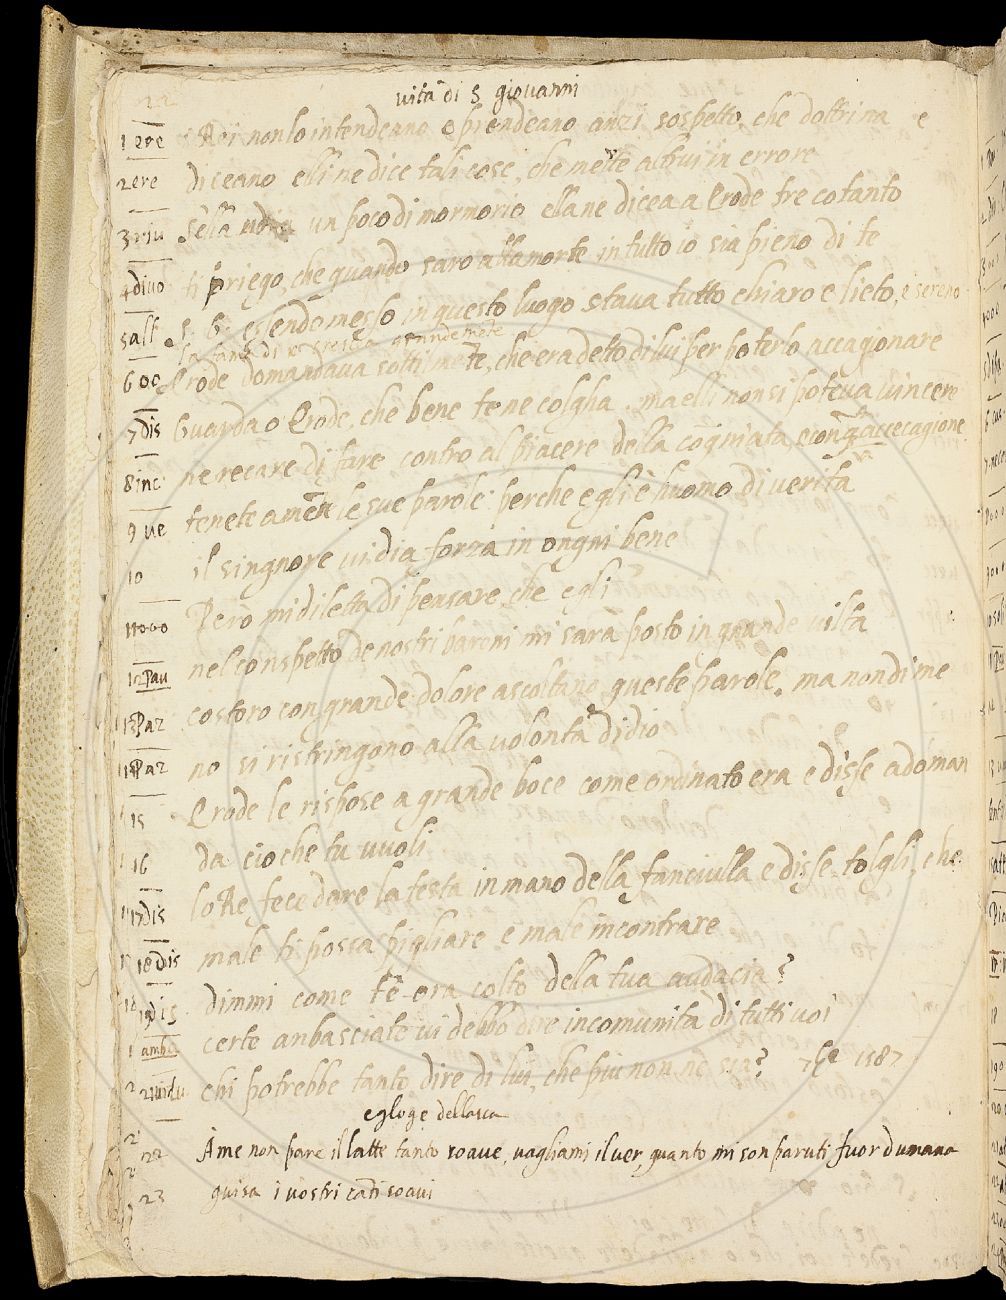 vita di S giovanni
1 ere i Rei non lo intendeano e prendeano anzi sospetto, che dottrina e
2 ere diceano elli ne dice tali cose, che mette altrui in errore
3 Sella un poco di mormorio ella ne dicea a Erode tre cotanto
4 divo ti priego, che quando saro alla morte in tutto io sia pieno di te
5 all S. G. essendo messo in questo luogo stava tutto chiaro e lieto, e sereno
la fama di crescea grandemete
6 oc Erode domandava sottilmete, che era detto di lui per poterlo accagionare
7 dis Guarda o Erode, che bene te ne colgha. ma elli non si poteva vincere
8 inc ne recare di fare contro al piacere della cogniata,
9 ve tenete a mēte le sue parole: perche egli è huomo di verita
10 il singnore vi dia forza in ongni bene
11 ooo Però mi diletta di pensare, che egli
12 Pau nel conspetto de nostri baroni mi sara posto in grande vilta
13 Paz costoro con grande dolore ascoltano queste parole. ma non di me
14 Paz no si ristringono alla volontà di dio
15 Erode le rispose a grande boce come ordinato era e disse adoman
16 da cio che tu vuoli
17 dis lo Re fece dare la testa in mano della fanciulla e disse tolgli, che
18 dis male ti possa pigliare e male incontrare
19 dis dimmi come tê ora colto della tua audacia?
amb certe anbasciate vi debbo dire in comunità di tutti voi
21 chi potrebbe tanto dire di lui, che piu non ne sia? 7bre 1587
egloge della
22 A me non pare il latte tanto soave, vagliami il ver, quanto mi son paruti fuor d umana
23 guisa i vostri cāti soavi